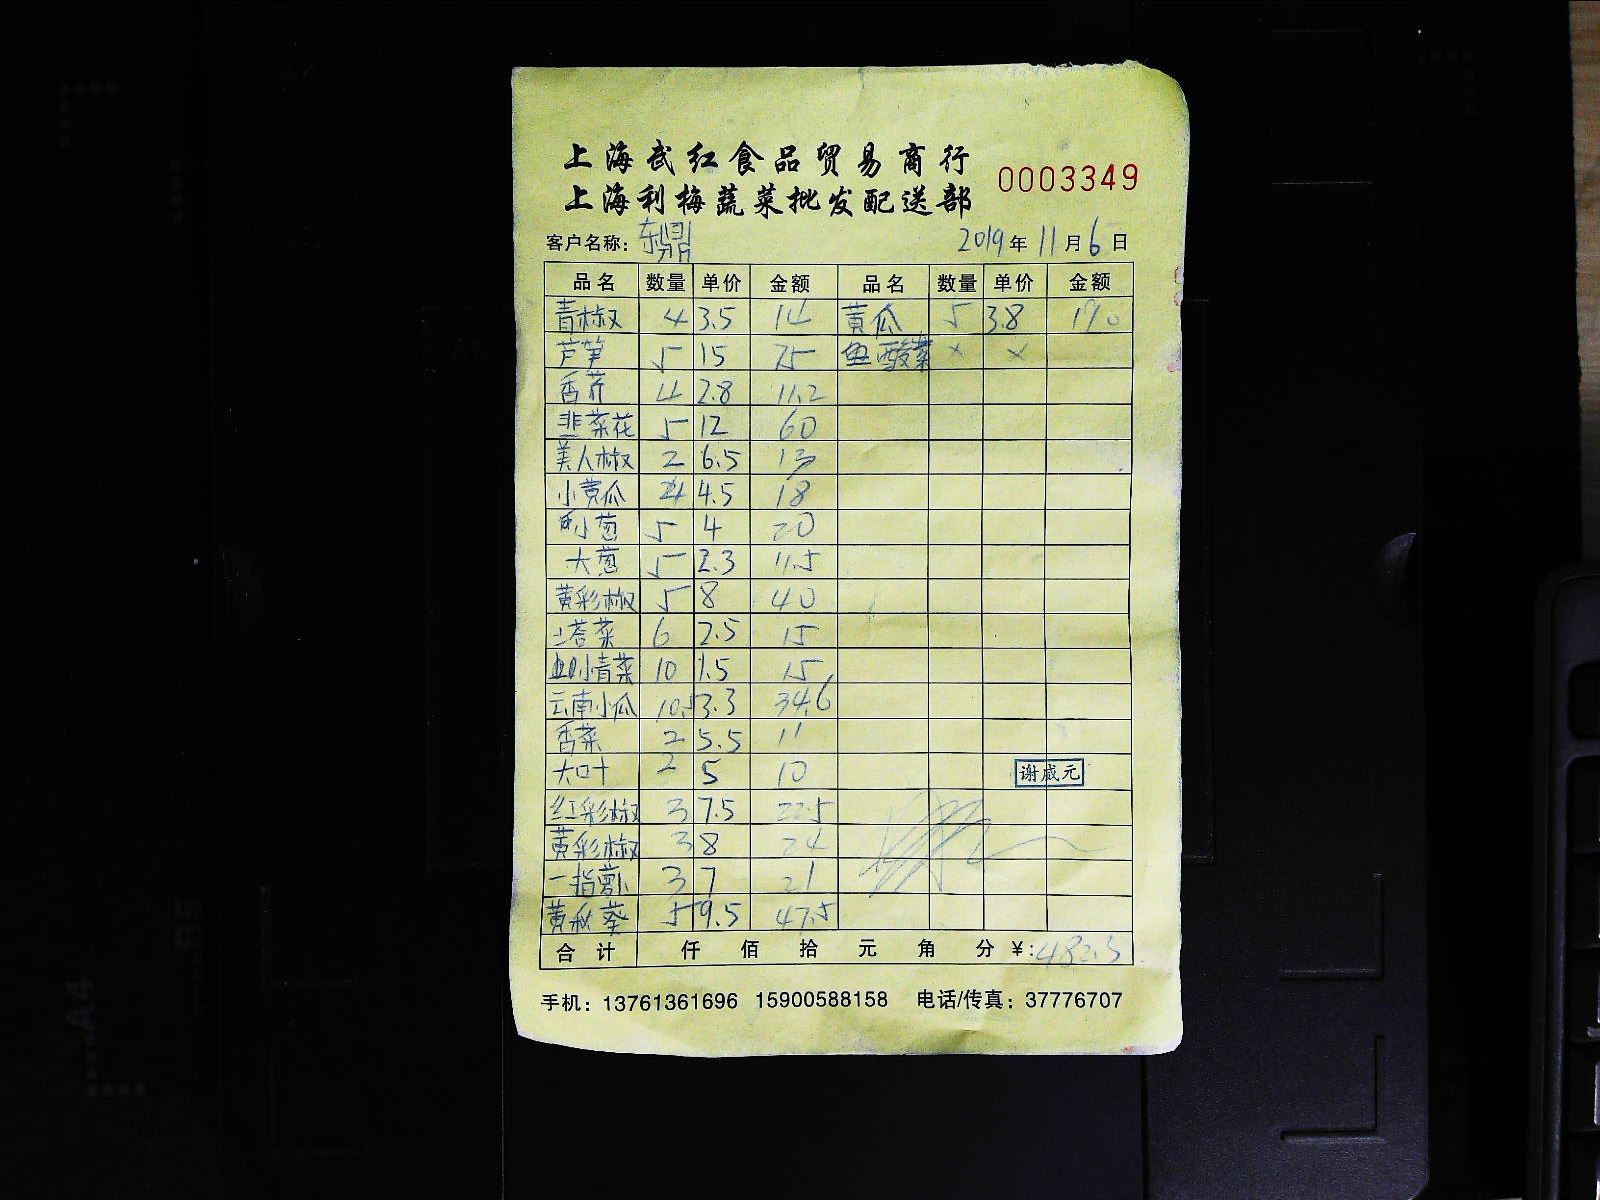 上海武红食品贸易商行
上海利梅蔬菜批发配送部
0003349
客户名称: 东鼎 2019年11月6日
品名 数量 单价 金额 品名 数量 单价 金额
青椒 4 3.5 14 黄瓜 5 3.8 190
芦笋 5 15 75 鱼酸菜 × ×
香芹 4 2.8 11.2
韭菜花 5 12 60
美人椒 2 6.5 13
小黄瓜 4 4.5 18
小葱 5 4 20
大葱 5 2.3 11.5
黄彩椒 5 8 40
塔菜 6 2.5 15
小青菜 10 1.5 15
云南小瓜 10.5 3.3 34.6
香菜 2 5.5 11
大叶 2 5 10
谢咸元
红彩椒 3 7.5 22.5
黄彩椒 3 8 24
一指萝卜 3 7 21
黄秋葵 5 9.5 47.5
合计 仟 佰 拾 元 角 分 ¥: 482.3
手机: 13761361696 15900588158 电话/传真: 37776707